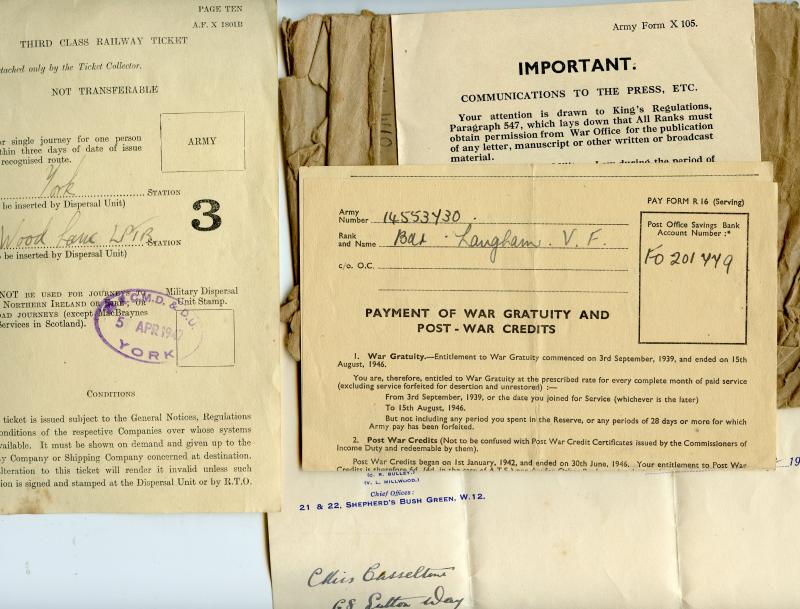 PAGE TEN
A.F. X 1801B
THIRD CLASS RAILWAY TICKET
tached only by the Ticket Collector.
NOT TRANSFERABLE
or single journey for one person
thin three days of date of issue
recognised route.
ARMY
York
STATION
be inserted by Dispersal Unit)
3
Wood Lane LPTB
STATION
be inserted by Dispersal Unit)
NOT BE USED FOR JOURNEYS
NORTHERN IRELAND OR EIRE; OR
OAD JOURNEYS (except MacBraynes
Services in Scotland).
Military Dispersal
Unit Stamp.
C.M.D. & D.U.
5 APR 194
YORK
CONDITIONS
ticket is issued subject to the General Notices, Regulations
onditions of the respective Companies over whose systems
vailable. It must be shown on demand and given up to the
ay Company or Shipping Company concerned at destination.
lteration to this ticket will render it invalid unless such
ion is signed and stamped at the Dispersal Unit or by R.T.O.
Army Form X 105.
IMPORTANT.
COMMUNICATIONS TO THE PRESS, ETC.
Your attention is drawn to King's Regulations,
Paragraph 547, which lays down that All Ranks must
obtain permission from War Office for the publication
of any letter, manuscript or other written or broadcast
material.
during the period of
PAY FORM R 16 (Serving)
Army
Number 14553430.
Rank
and Name Bdr. Langham. V. F.
c/o. O.C.
Post Office Savings Bank
Account Number :*
FO 201449
PAYMENT OF WAR GRATUITY AND
POST - WAR CREDITS
1. War Gratuity.—Entitlement to War Gratuity commenced on 3rd September, 1939, and ended on 15th
August, 1946.
You are, therefore, entitled to War Gratuity at the prescribed rate for every complete month of paid service
(excluding service forfeited for desertion and unrestored) :—
From 3rd September, 1939, or the date you joined for Service (whichever is the later)
To 15th August, 1946.
But not including any period you spent in the Reserve, or any periods of 28 days or more for which
Army pay has been forfeited.
2. Post War Credits (Not to be confused with Post War Credit Certificates issued by the Commissioners of
Income Duty and redeemable by them).
Post War Credits began on 1st January, 1942, and ended on 30th June, 1946. Your entitlement to Post War
19
(C. R. BULLEY.)
(V. L. MILLWOOD.)
Chief Offices :
21 & 22, SHEPHERD'S BUSH GREEN, W.12.
Miss Casseltine
68 Sutton Way